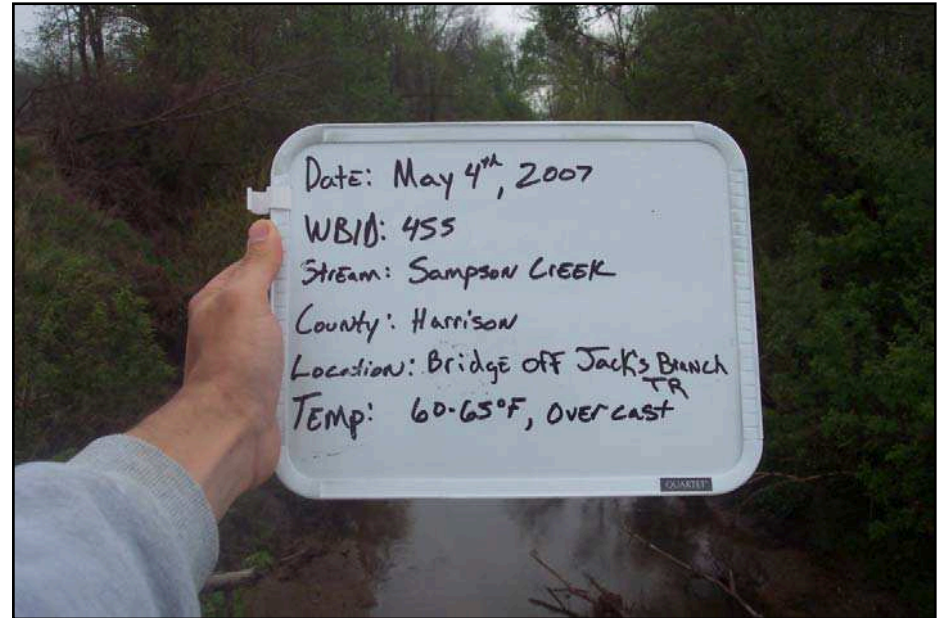 Date: May 4th, 2007
WBID: 455
Stream: Sampson Creek
County: Harrison
Location: Bridge off Jack's Branch
TR
Temp: 60-65°F, Overcast
QUARTET